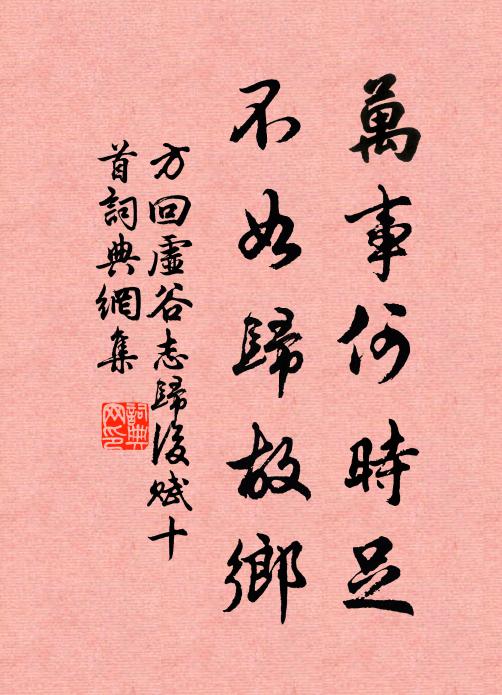 萬事何時足
不如歸故鄉
方回虛谷志歸後賦十
首詞典網集
詞典
网印